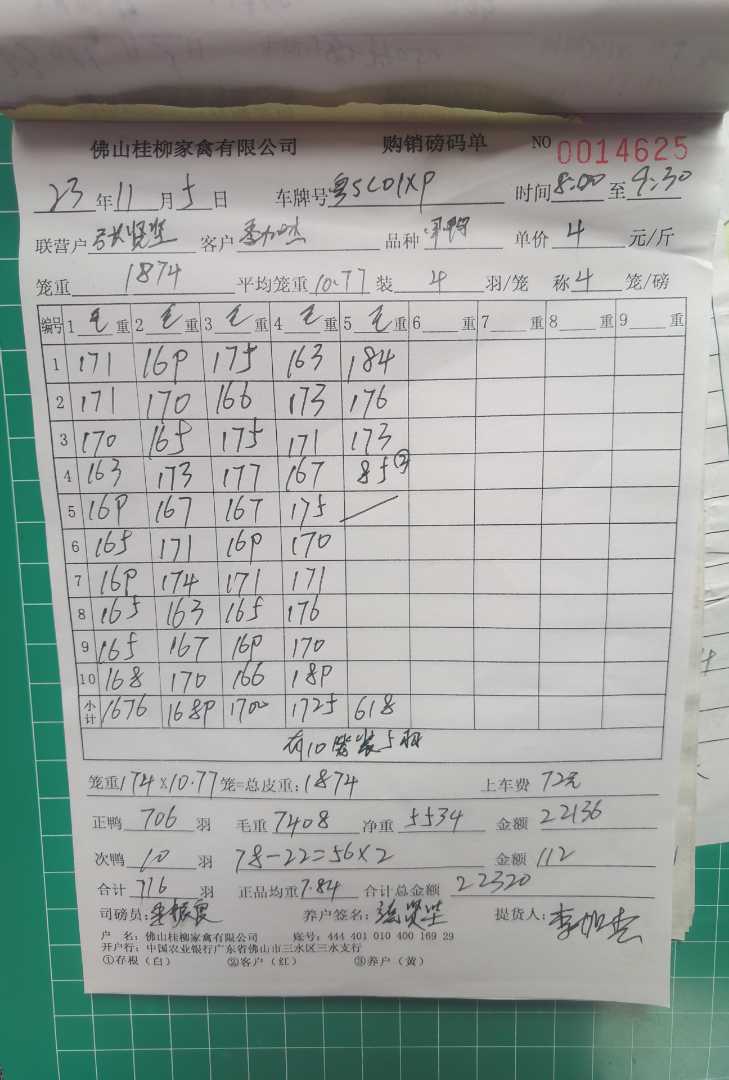 佛山桂柳家禽有限公司 购销磅码单 NO 0014625
23年11月5日 车牌号粤SC01XP 时间8:00至9:30
联营户 张贤坚 客户 李加杰 品种 单价 4 元/斤
笼重 1874 平均笼重 10.77 装 4 羽/笼 称 4 笼/磅
编号 1 毛 重 2 毛 重 3 毛 重 4 毛 重 5 毛 重 6 重 7 重 8 重 9 重
1 171 169 175 163 184
2 171 170 166 173 176
3 170 165 175 171 173
4 163 173 177 167 85②
5 169 167 167 175
6 165 171 169 170
7 169 174 171 171
8 165 163 165 176
9 165 167 169 170
10 168 170 166 189
小计 1676 1689 1700 1725 618
有10笼装5羽
笼重174×10.77笼=总皮重:1874 上车费 72元
正鸭 706 羽 毛重 7408 净重 5534 金额 22136
次鸭 10 羽 78-22=56×2 金额 112
合计 716 羽 正品均重 7.84 合计总金额 22320
司磅员: 养户签名: 张贤坚 提货人: 李加杰
户 名: 佛山桂柳家禽有限公司 账号: 444 401 010 400 169 29
开户行: 中国农业银行广东省佛山市三水区三水支行
①存根（白） ②客户（红） ③养户（黄）